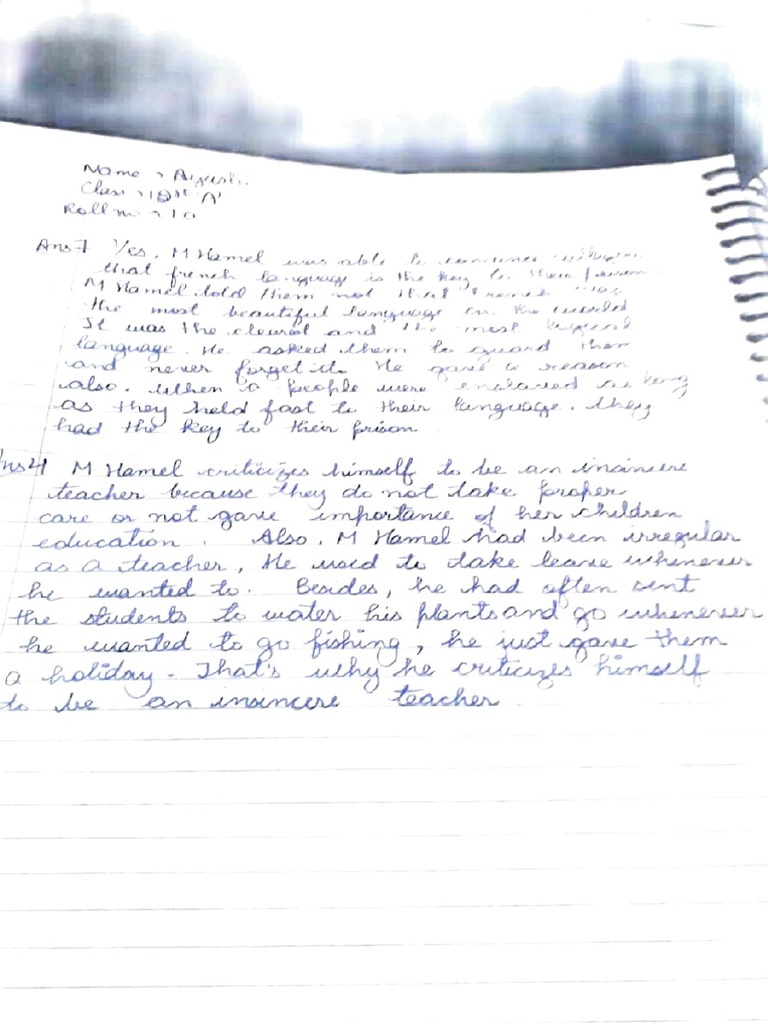 Name →
Class → 12th 'A'
Roll no → 10
Ans 7 Yes, M Hamel was able to
that french language is the key to their prison
M Hamel told them not that French was
the most beautiful language in the world
It was the clearest and the most logical
language. He asked them to guard them
and never forget it. He gave a reason
also. When a people were enslaved as long
as they held fast to their language. they
had the key to their prison
Ans 4 M Hamel criticizes himself to be an insincere
teacher because they do not take proper
care or not gave importance of her children
education. Also, M Hamel had been irregular
as a teacher, He used to take leave whenever
he wanted to. Besides, he had often sent
the students to water his plants and go whenever
he wanted to go fishing, he just gave them
a holiday. That's why he criticizes himself
to be an insincere teacher